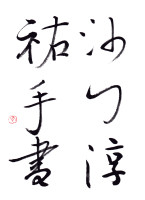 沙门淳
祐手書